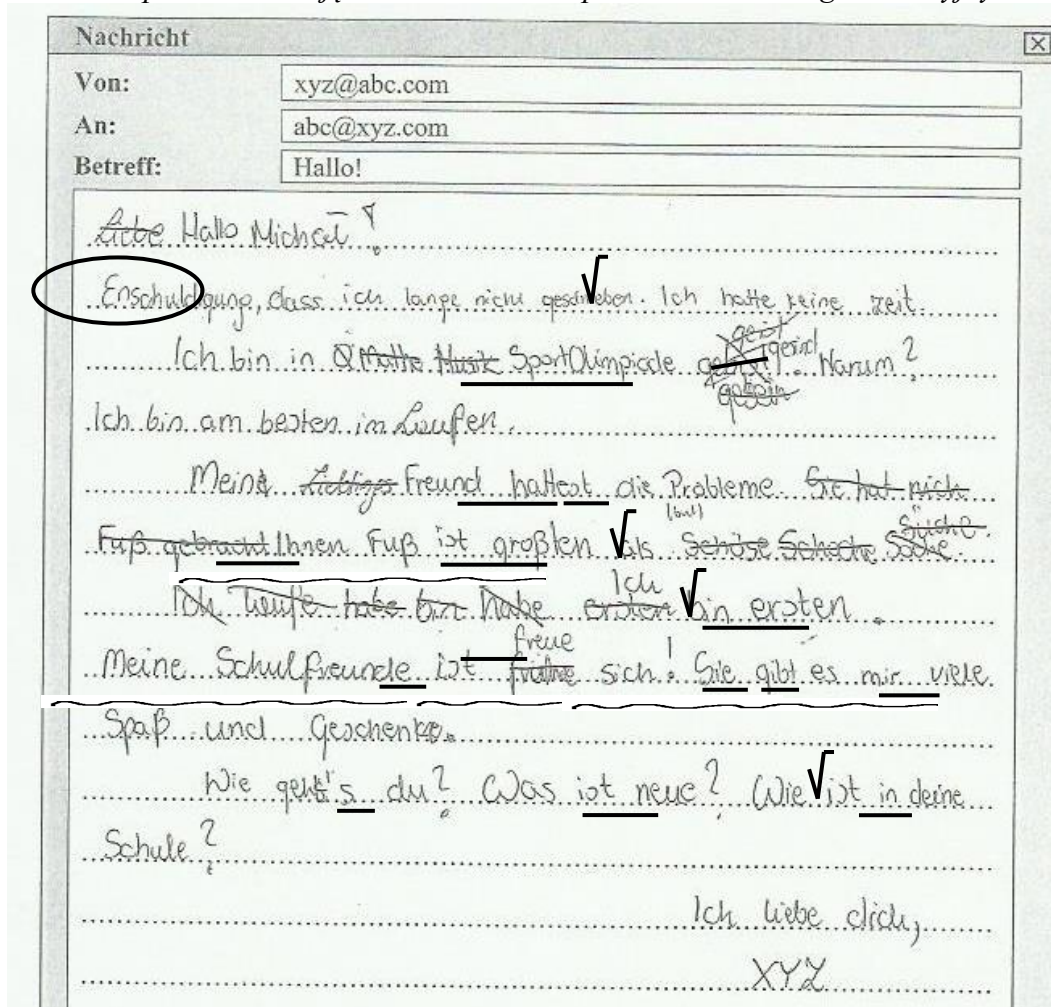 Nachricht
Von: xyz@abc.com
An: abc@xyz.com
Betreff: Hallo!
Liebe Hallo Michał!
Enschuldigung, dass ich lange nicht geschrieben. Ich hatte keine zeit.
Ich bin in Mathe Musik SportOlimpiade geist. Warum?
Ich bin am besten in Laufen.
Meine Lieblings Freund hattest die Probleme. Sie hat mich
Fuß gebracht Ihnen Fuß ist größten als Schöse Sache.
Ich heufe habe bin habe ersten Ich bin ersten.
Meine Schulfreunde ist freue sich! Sie gibt es mir viele
Spaß und Geschenke.
Wie geht's du? Was ist neue? Wie ist in deine
Schule?
Ich liebe dich,
XYZ